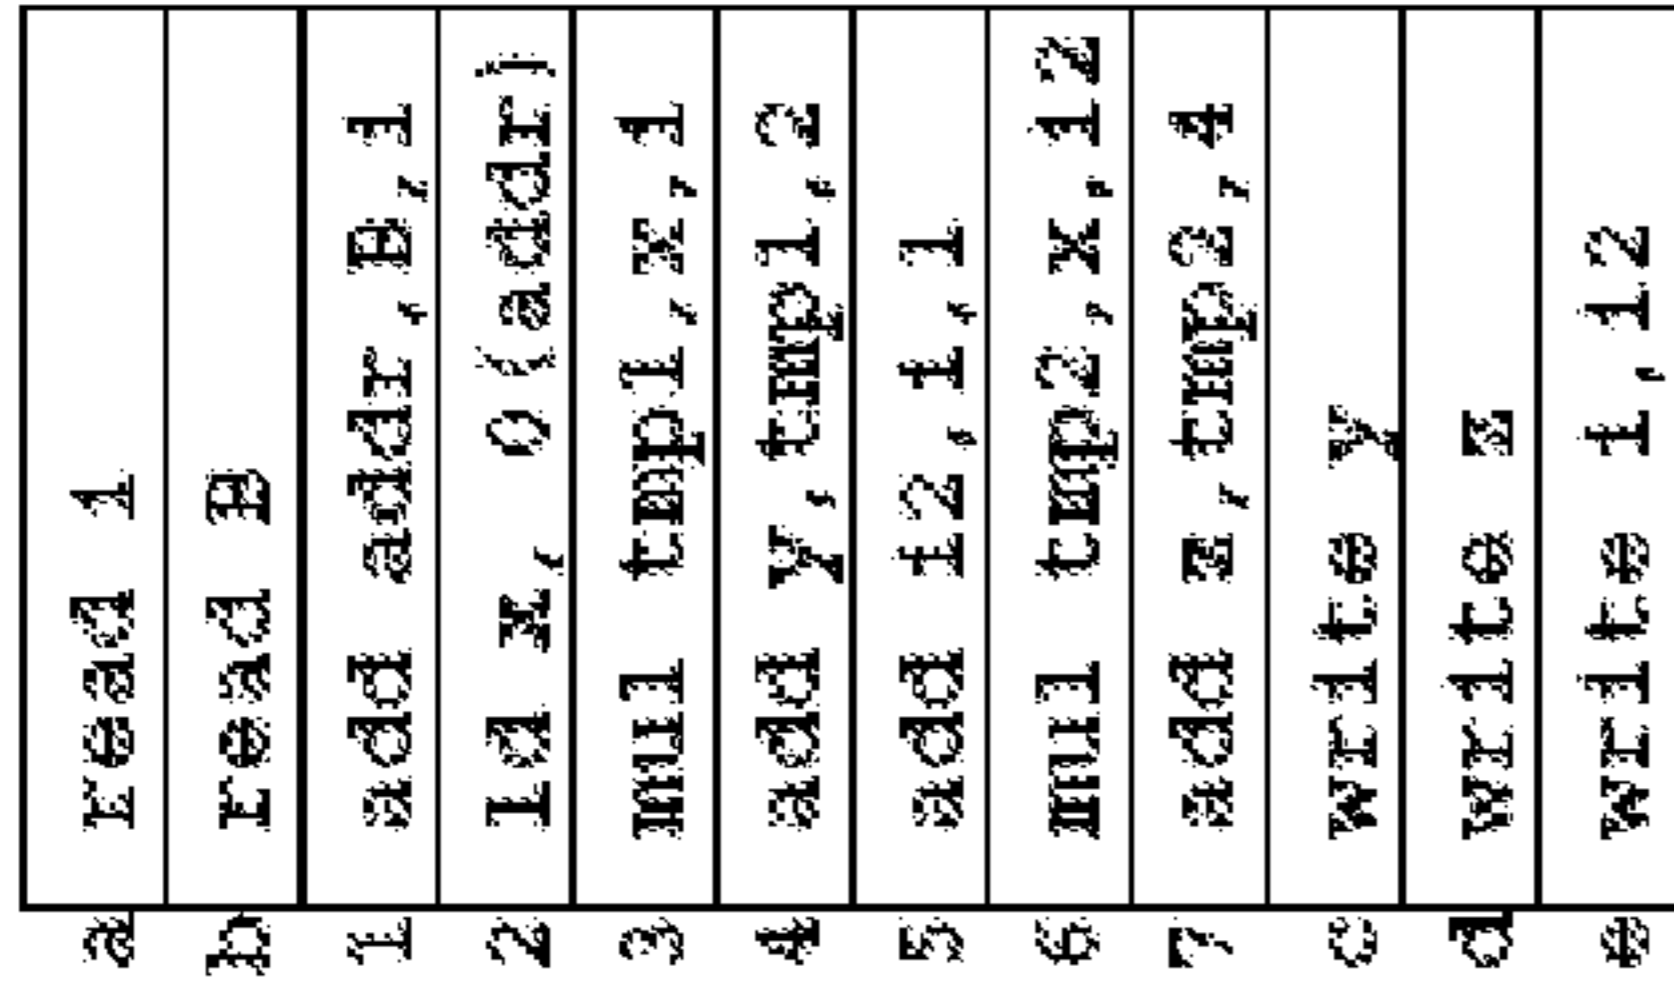 a read i
b read B
1 add addr,B,i
2 ld x, 0(addr)
3 mul tmp1,x,i
4 add y,tmp1,2
5 add i2,i,1
6 mul tmp2,x,i2
7 add z,tmp2,4
c write y
d write z
e write i,i2